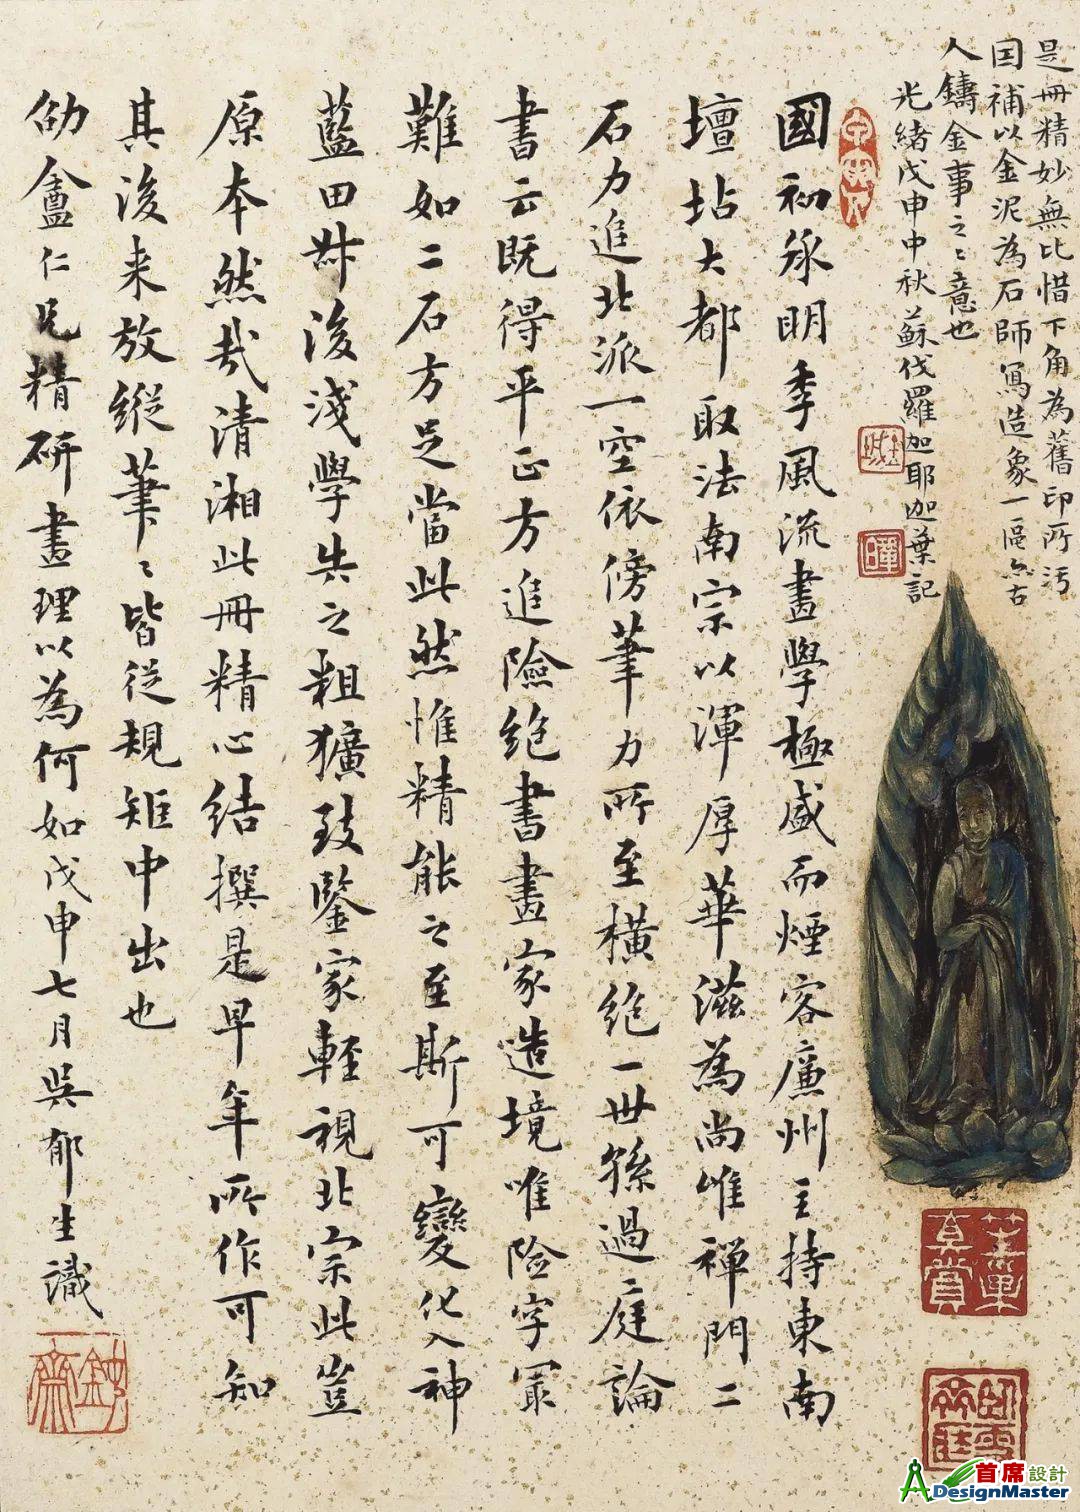 是冊精妙無比惜下角為舊印所污
因補以金泥為石師寫造象一區亦古
人鑄金事之之意也
光緒戊申中秋蘇伐羅迦耶迦葉記
國初承明季風流畫學極盛而煙客廉州主持東南
壇坫大都取法南宗以渾厚華滋為尚惟禪門二
石力追北派一空依傍筆力所至橫絶一世孫過庭論
書云既得平正方追險絶書畫家造境唯險字最
難如二石方足當此然惟精能之至斯可變化入神
藍田叔後淺學失之粗獷致鑒家輕視北宗此豈
原本然哉清湘此冊精心結撰是早年所作可知
其後来放縱筆筆皆從規矩中出也
劬盦仁兄精研畫理以為何如戊申七月吳郁生識
真賞
首席設計
DesignMaster